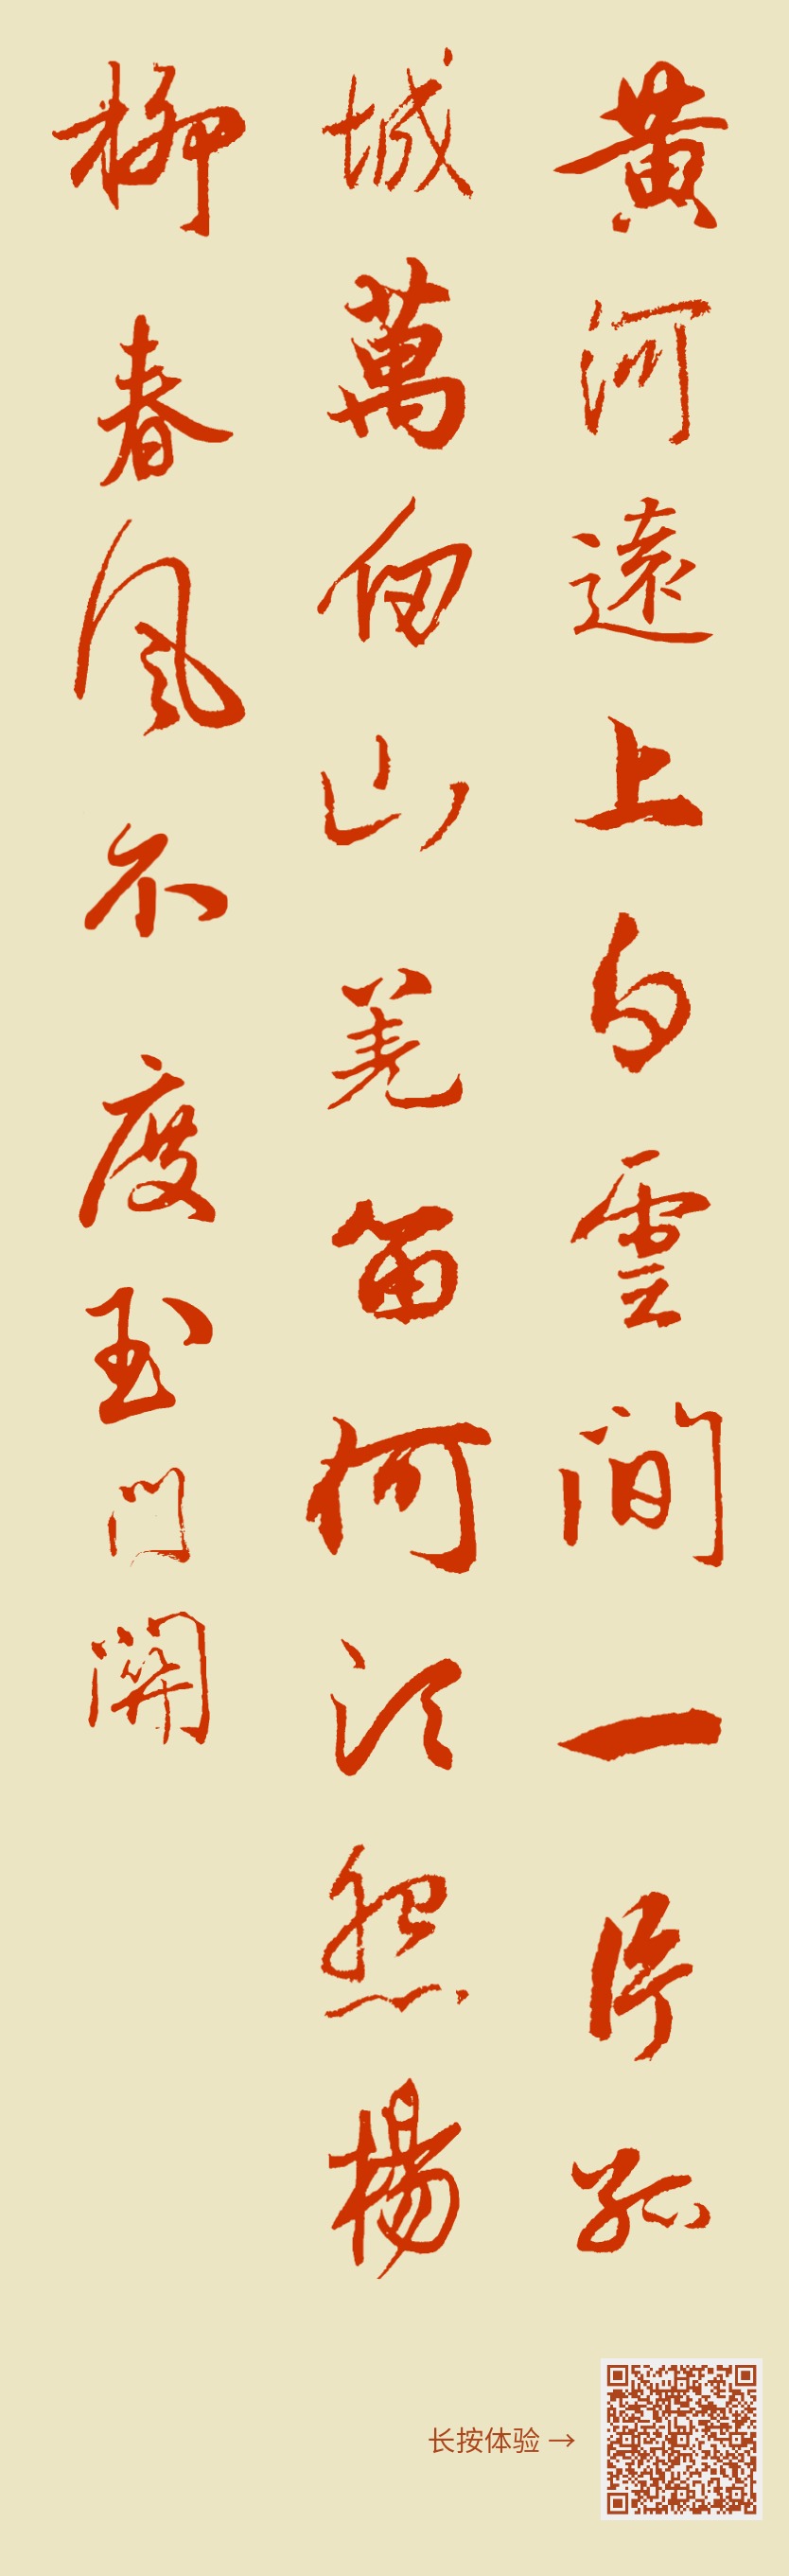 黄河遠上白雲间一片孤
城萬仞山羌笛何须怨楊
柳春风不度玉门関
长按体验 →